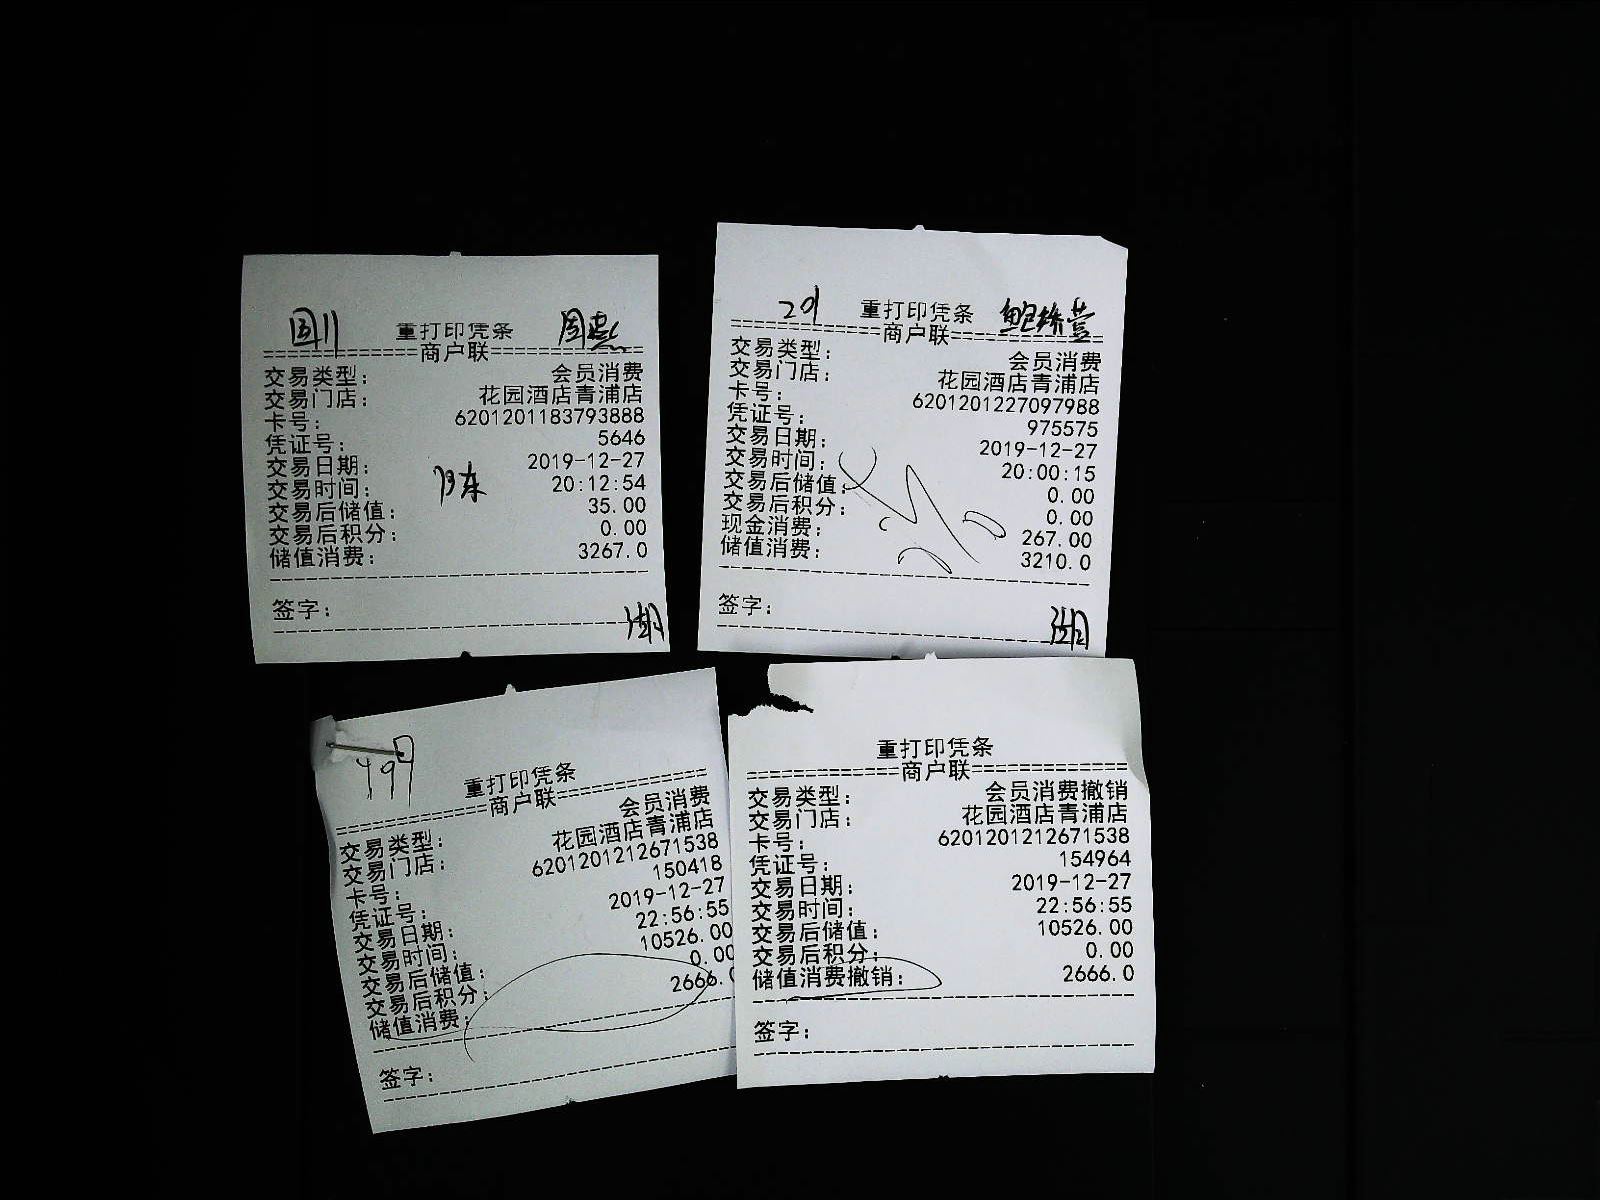 重打印凭条
商户联
交易类型: 会员消费
交易门店: 花园酒店青浦店
卡号: 6201201183793888
凭证号: 5646
交易日期: 2019-12-27
交易时间: 20:12:54
交易后储值: 35.00
交易后积分: 0.00
储值消费: 3267.0
签字:
201 重打印凭条
商户联
交易类型: 会员消费
交易门店: 花园酒店青浦店
卡号: 6201201227097988
凭证号: 975575
交易日期: 2019-12-27
交易时间: 20:00:15
交易后储值: 0.00
交易后积分: 0.00
现金消费: 267.00
储值消费: 3210.0
签字:
重打印凭条
商户联
交易类型: 会员消费
交易门店: 花园酒店青浦店
卡号: 6201201212671538
凭证号: 150418
交易日期: 2019-12-27
交易时间: 22:56:55
交易后储值: 10526.00
交易后积分: 0.00
储值消费: 2666.0
签字:
重打印凭条
商户联
交易类型: 会员消费撤销
交易门店: 花园酒店青浦店
卡号: 6201201212671538
凭证号: 154964
交易日期: 2019-12-27
交易时间: 22:56:55
交易后储值: 10526.00
交易后积分: 0.00
储值消费撤销: 2666.0
签字: